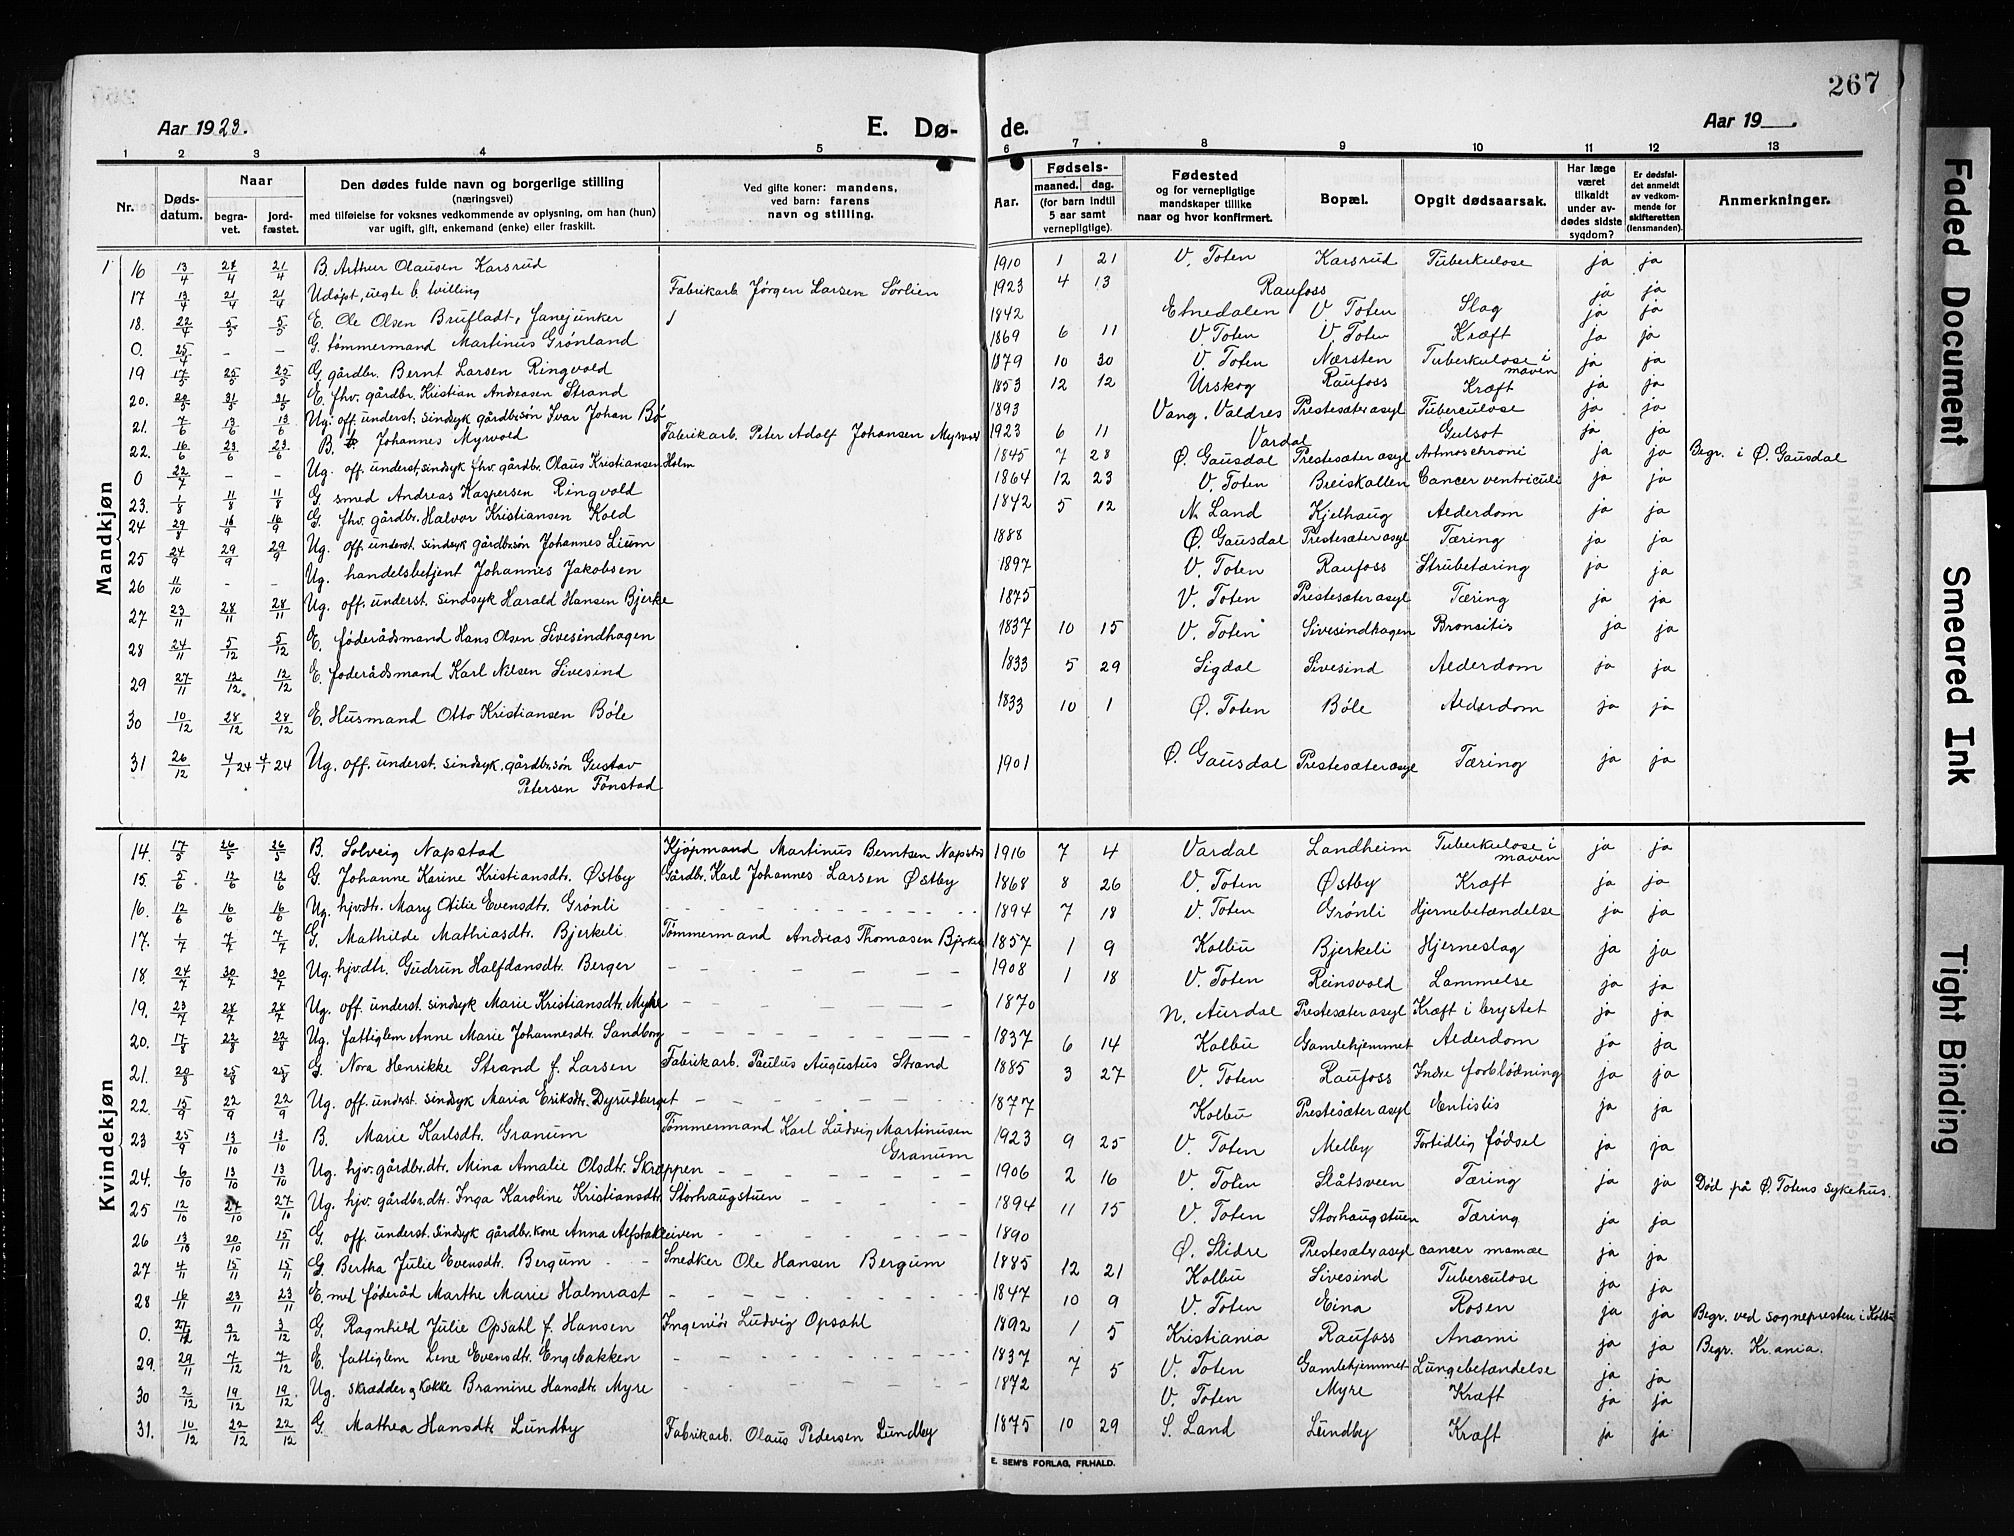 267
Aar 1923.
E. Dø-
de.
Aar 19
1 2 3 4 5
6 7 8 9 10 11 12 13
Nr.
Døds-
datum.
Naar
begra-
vet.
jord-
fæstet.
Den dødes fulde navn og borgerlige stilling
(næringsvei)
med tilføielse for voksnes vedkommende av oplysning, om han (hun)
var ugift, gift, enkemand (enke) eller fraskilt.
Ved gifte koner: mandens,
ved barn: farens
navn og stilling.
Aar.
Fødsels-
maaned. dag.
(for barn indtil
5 aar samt
vernepligtige).
Fødested
og for vernepligtige
mandskaper tillike
naar og hvor konfirmert.
Bopæl.
Opgit dødsaarsak.
Har læge
været
tilkaldt
under av-
dødes sidste
sygdom?
Er dødsfal-
det anmeldt
av vedkom-
mende for
skifteretten
(lensmanden).
Anmerkninger.
Mandkjøn
16 13/4 21/4 21/4 B. Arthur Olausen Karsrud 1910 1 21 V. Toten Karsrud Tuberkulose ja ja
17 13/4 21/4 21/4 Udøpt, uegte b. tvilling Fabrikarb. Jørgen Larsen Sørlien 1923 4 13 Raufoss ja ja
18. 22/4 5/5 5/5 E. Ole Olsen Brufladt, fanejunker 1842 Etnedalen V. Toten Slag ja ja
0. 25/4 - - G. tømmermand Martinus Grønland 1869 6 11 V. Toten V. Toten Kræft ja ja
19 17/5 25/5 25/5 G. gårdbr. Bernt Larsen Ringvold 1879 10 30 V. Toten Nærsten Tuberkulose i maven ja ja
20. 20/5 31/5 31/5 E. fhv. gårdbr. Kristian Andreasen Strand 1853 12 12 Urskog Raufoss Kræft ja ja
21. 7/6 13/6 13/6 Ug. off. underst. sindsyk gårdbr.søn Ivar Johan Bø 1893 Vang. Valdres Prestesæter asyl Tuberculose ja ja
22. 16/6 23/6 23/6 B. Johannes Myrvold Fabrikarb. Peter Adolf Johansen Myrvold 1923 6 11 Vardal Gulsot ja ja
0 22/7 - - Ug. off. underst. sindsyk fhv. gårdbr. Olaus Kristiansen Holm 1845 7 28 Ø. Gausdal Prestesæter asyl ja ja Begr. i Ø. Gausdal
23. 1/8 11/8 11/8 G. smed Andreas Kaspersen Ringvold 1864 12 23 V. Toten Breiskallen Cancer ventriculi ja ja
24 29/8 16/9 16/9 G. fhv. gårdbr. Halvor Kristiansen Kold 1842 5 12 N. Land Kjelhaug Alderdom ja ja
25 24/9 29/9 29/9 Ug. off. underst. sindsyk gårdbr.søn Johannes Lium 1888 Ø. Gausdal Prestesæter asyl Tæring ja ja
26 11/10 - - Ug. handelsbetjent Johannes Jakobsen 1897 V. Toten Raufoss Strubetæring ja ja
27 23/11 28/11 28/11 Ug. off. underst. sindsyk Harald Hansen Bjerke 1875 V. Toten Prestesæter asyl Tæring ja ja
28 24/11 5/12 5/12 E. føderådsmand Hans Olsen Sivesindhagen 1837 10 15 V. Toten Sivesindhagen Bronsitis ja ja
29 27/11 12/12 12/12 E. føderådsmand Karl Nilsen Sivesind 1833 5 29 Sigdal Sivesind Alderdom ja ja
30 10/12 28/12 28/12 E. Husmand Otto Kristiansen Bøle 1833 10 1 Ø. Toten Bøle Alderdom ja ja
31 26/12 4/1 24 4/1 24 Ug. off. underst. sindsyk. gårdbr.søn Gustav 1901 Ø. Gausdal Prestesæter asyl Tæring ja ja
Petersen Fonstad
Kvindekjøn
14. 17/5 26/5 26/5 B. Solveig Napstad Kjøpmand Martinus Berntsen Napstad 1916 7 4 Vardal Landheim Tuberkulose i maven ja ja
15. 5/6 12/6 12/6 G. Johanne Karine Kristiansdtr. Østby Gårdbr. Karl Johannes Larsen Østby 1868 8 26 V. Toten Østby Kræft ja ja
16. 12/6 16/6 16/6 Ug. hjv.dtr. Mary Otilie Evensdtr. Grønli 1894 7 18 V. Toten Grønli Hjernebetændelse ja ja
17. 1/7 7/7 7/7 G. Mathilde Mathiasdtr. Bjerkeli Tømmermand Andreas Thomasen Bjerkeli 1857 1 9 Kolbu Bjerkeli Hjerneslag ja ja
18. 24/7 30/7 30/7 Ug. hjv.dtr. Gudrun Halfdansdtr. Berger 1908 1 18 V. Toten Reinsvold Lammelse ja ja
19. 23/7 28/7 28/7 Ug. off. underst. sindsyk Marie Kristiansdtr. Myhre 1870 N. Aurdal Prestesæter asyl Kræft i brystet ja ja
20. 17/8 22/8 22/8 Ug. fattiglem Anne Marie Johannesdtr. Sandborg 1837 6 14 Kolbu Gamlehjemmet Alderdom ja ja
21. 20/8 25/8 25/8 G. Nora Henrikke Strand f. Larsen Fabrikarb. Paulus Augustus Strand 1885 3 27 V. Toten Raufoss Indre forblødning ja ja
22. 15/9 22/9 22/9 Ug. off. underst. sindsyk Maria Eriksdtr. Dyrudberget 1877 Kolbu Prestesæter asyl ja ja
23 25/9 13/10 13/10 B. Marie Karlsdtr. Granum Tømmermand Karl Ludvig Martinusen Granum 1923 9 25 V. Toten Melby Fortidlig fødsel ja ja
24. 6/10 13/10 13/10 Ug. hjv. gårdbr.dtr. Mina Amalie Olsdtr. Skreppen 1906 2 16 V. Toten Slåtsveen Tæring ja ja Død på Ø. Totens sykehus.
25 12/10 27/10 27/10 Ug. hjv. gårdbr.dtr. Inga Karoline Kristiansdtr. Storhaugstuen 1894 11 15 V. Toten Storhaugstuen Tæring ja ja
26 13/10 20/10 15/11 G. off. underst. sindsyk gårdbr.kone Anna Alfstakleiven 1890 Ø. Slidre Prestesæter asyl cancer mamae ja ja
27 4/11 15/11 15/11 G. Bertha Julie Evensdtr. Bergum Snedker Ole Hansen Bergum 1885 12 21 Kolbu Sivesind Tuberculose ja ja
28 16/11 23/11 23/11 E. med føderåd Marthe Marie Halmrast 1847 10 9 V. Toten Eina Rosen ja ja Begr. ved sognepresten i Kolbu
0. 27/12 3/12 3/12 G. Ragnhild Julie Opsahl f. Hansen Ingeniør Ludvig Opsahl 1892 1 5 Kristiania Raufoss Anæmi ja ja Begr. Kr.ania.
29. 29/11 7/12 7/12 E. fattiglem Lene Evensdtr. Engebakken 1837 7 5 V. Toten Gamlehjemmet Lungebetændelse ja ja
30 2/12 19/12 19/12 Ug. skrædder og kokke Bramine Hansdtr. Myre 1872 V. Toten Myre Kræft ja ja
31. 10/12 22/12 22/12 G. Mathea Hansdtr. Lundby Fabrikarb. Olaus Pedersen Lundby 1875 10 29 S. Land Lundby Kræft ja ja
E. SEM'S FORLAG, FR.HALD.
Faded Document
Smeared Ink
Tight Binding